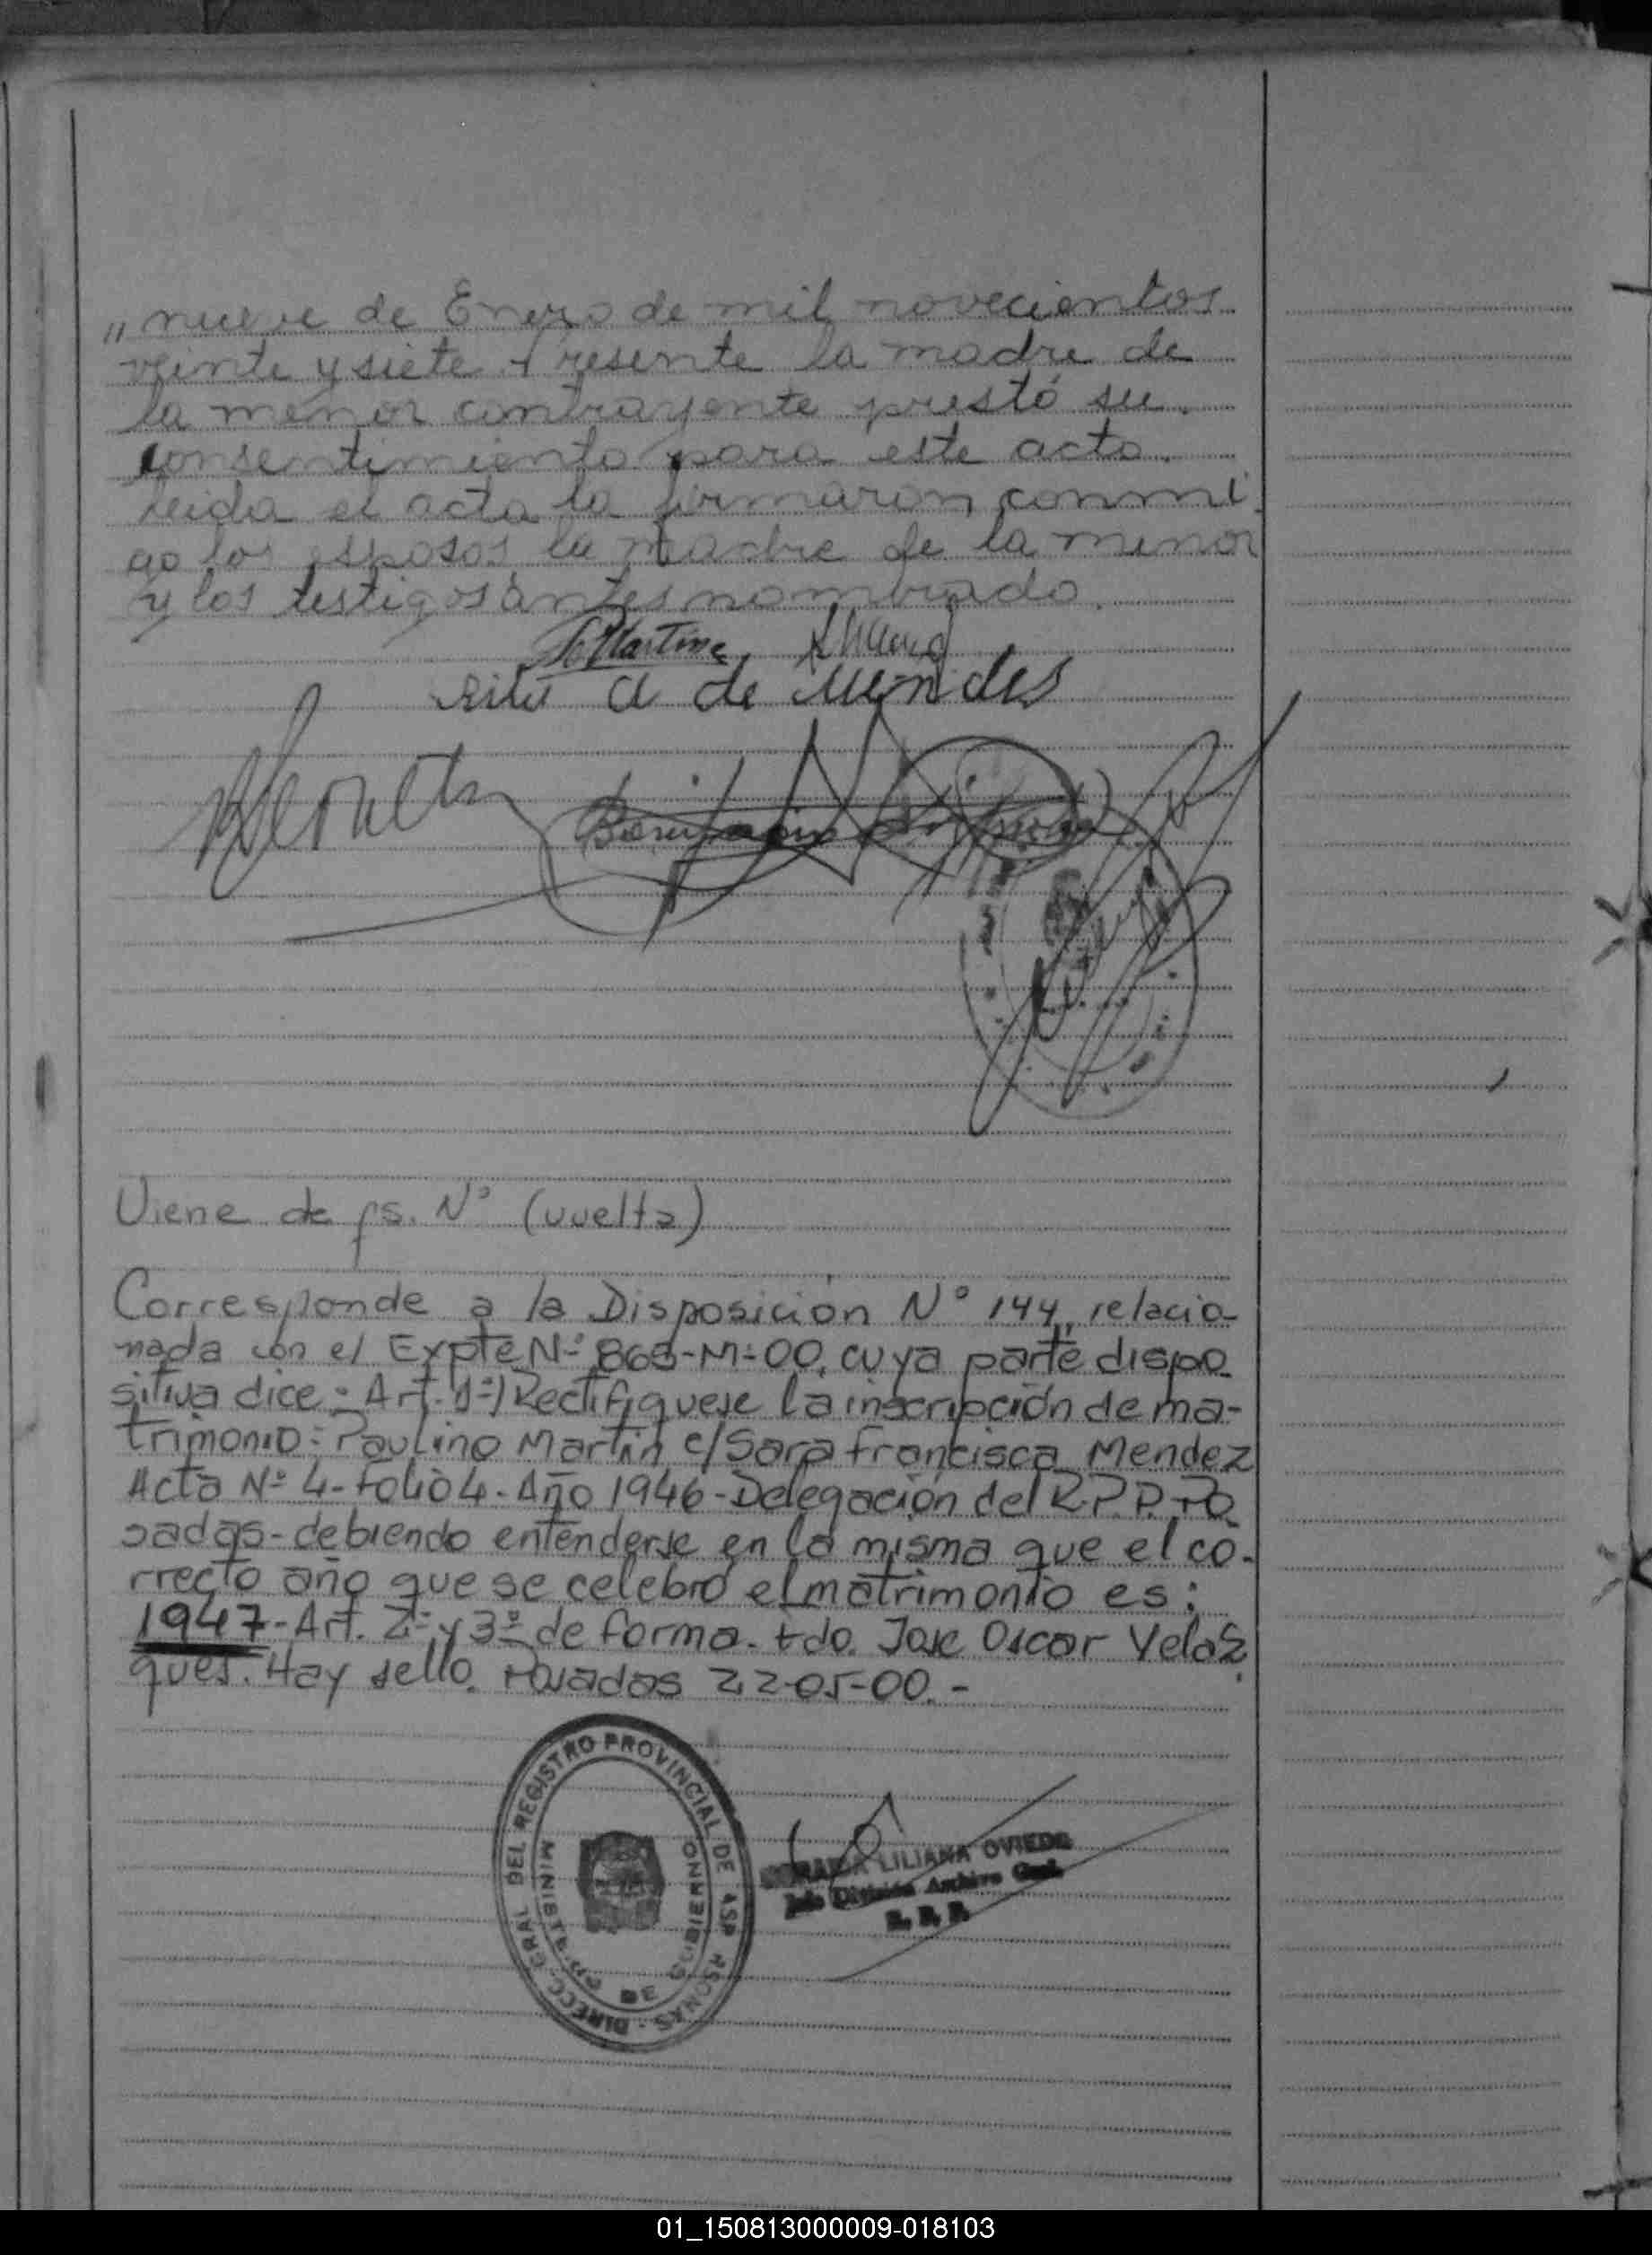 „ nueve de Enero de mil novecientos
veinte y siete. Presente la madre de
la menor contrayente prestó su
consentimiento para este acto.
leida el acta la firmaron conmi
go los esposos, la madre de la menor
y los testigos antes nombrado.
P Martin
Rita A de Mendes
Viene de fs. Nº (vuelta)
Corresponde a la Disposición Nº 144, relacio-
nada con el Expte Nº 865-M-00, cuya parte dispo
sitiva dice: Art. 1º) Rectifiquese la inscripción de ma-
trimonio: Paulino Martin c/ Sara Francisca Mendez
Acta Nº 4 - Folio 4 - Año 1946 - Delegación del R.P.P. Po
sadas - debiendo entenderse en la misma que el co-
rrecto año que se celebró el matrimonio es:
1947 - Art. 2º y 3º de forma. Fdo. Jose Oscar Velaz
ques. Hay sello. Posadas 22-05-00.-
DIRECC. GRAL DEL REGISTRO PROVINCIAL DE LAS PERSONAS
MINISTERIO DE GOBIERNO
LILIANA OVIEDO
Jefe División Archivo Gral.
R. P. P.
01_150813000009-018103